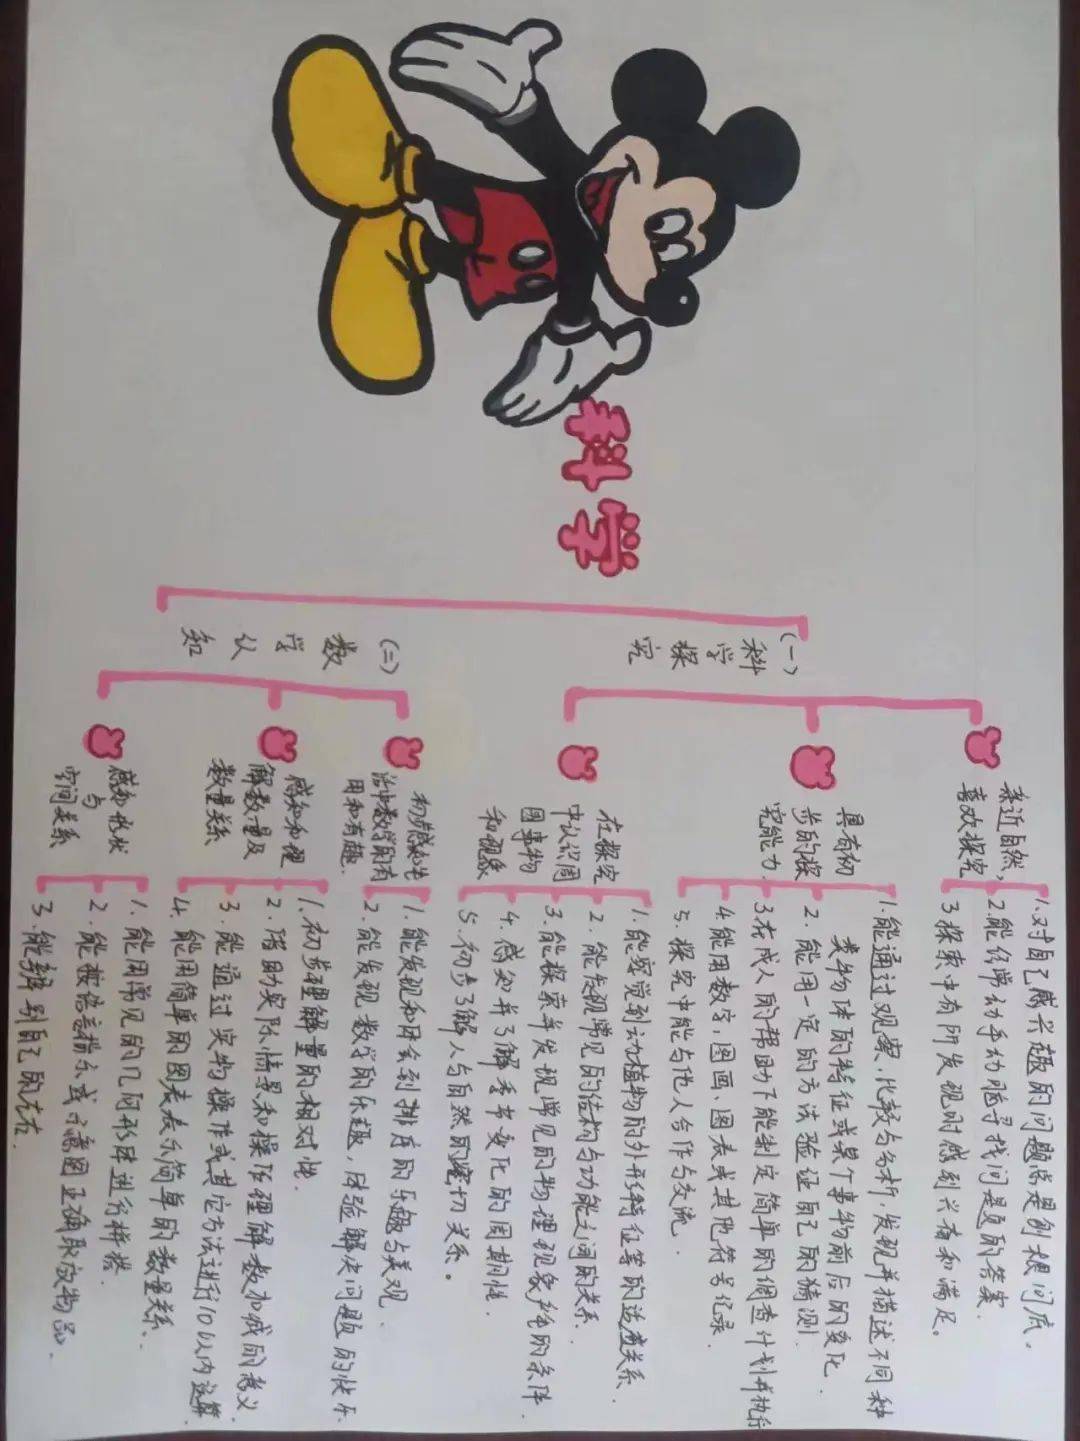 科学
(一)
科学
探究
亲近自然,
喜欢探究
1.对自己感兴趣的问题总是刨根问底。
2.能经常动手动脑寻找问题的答案.
3探索中有所发现时感到兴奋和满足。
具有初
步的探
究能力.
1.能通过观察,比较与分析,发现并描述不同种
类物体的特征或某个事物前后的变化.
2.能用一定的方法验证自己的猜测
3.在成人的帮助下能制定简单的调查计划并执行
4.能用数字,图画、图表或其他符号记录.
5.探究中能与他人合作与交流.
在探究
中认识周
围事物
和现象
1.能察觉到动植物的外形特征等的适应关系.
2.能发现常见的结构与功能之间的关系.
3.能探索并发现常见的物理现象产生的条件.
4.感知并了解季节变化的周期性.
5.初步了解人与自然的密切关系。
(二)
数学
认知
初步感知生
活中数学的有
用和有趣.
1.能发现和体会到排序的乐趣与美观.
2.能发现数学的乐趣,体验解决问题的快乐.
感知和理
解数量及
数量关系
1.初步理解量的相对性.
2.借助实际情景和操作理解数加减的意义.
3.能通过实物操作或其它方法进行10以内运算
4.能用简单的图表表示简单的数量关系.
感知形状
与
空间关系
1.能用常见的几何形体进行拼搭.
2.能按语言指示或示意图正确取放物品.
3.能辨别自己的左右.